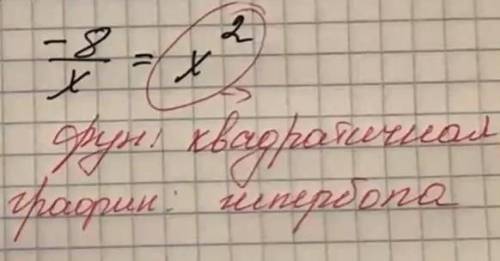 -8/x = x²
фун: квадратичная
график: гипербола